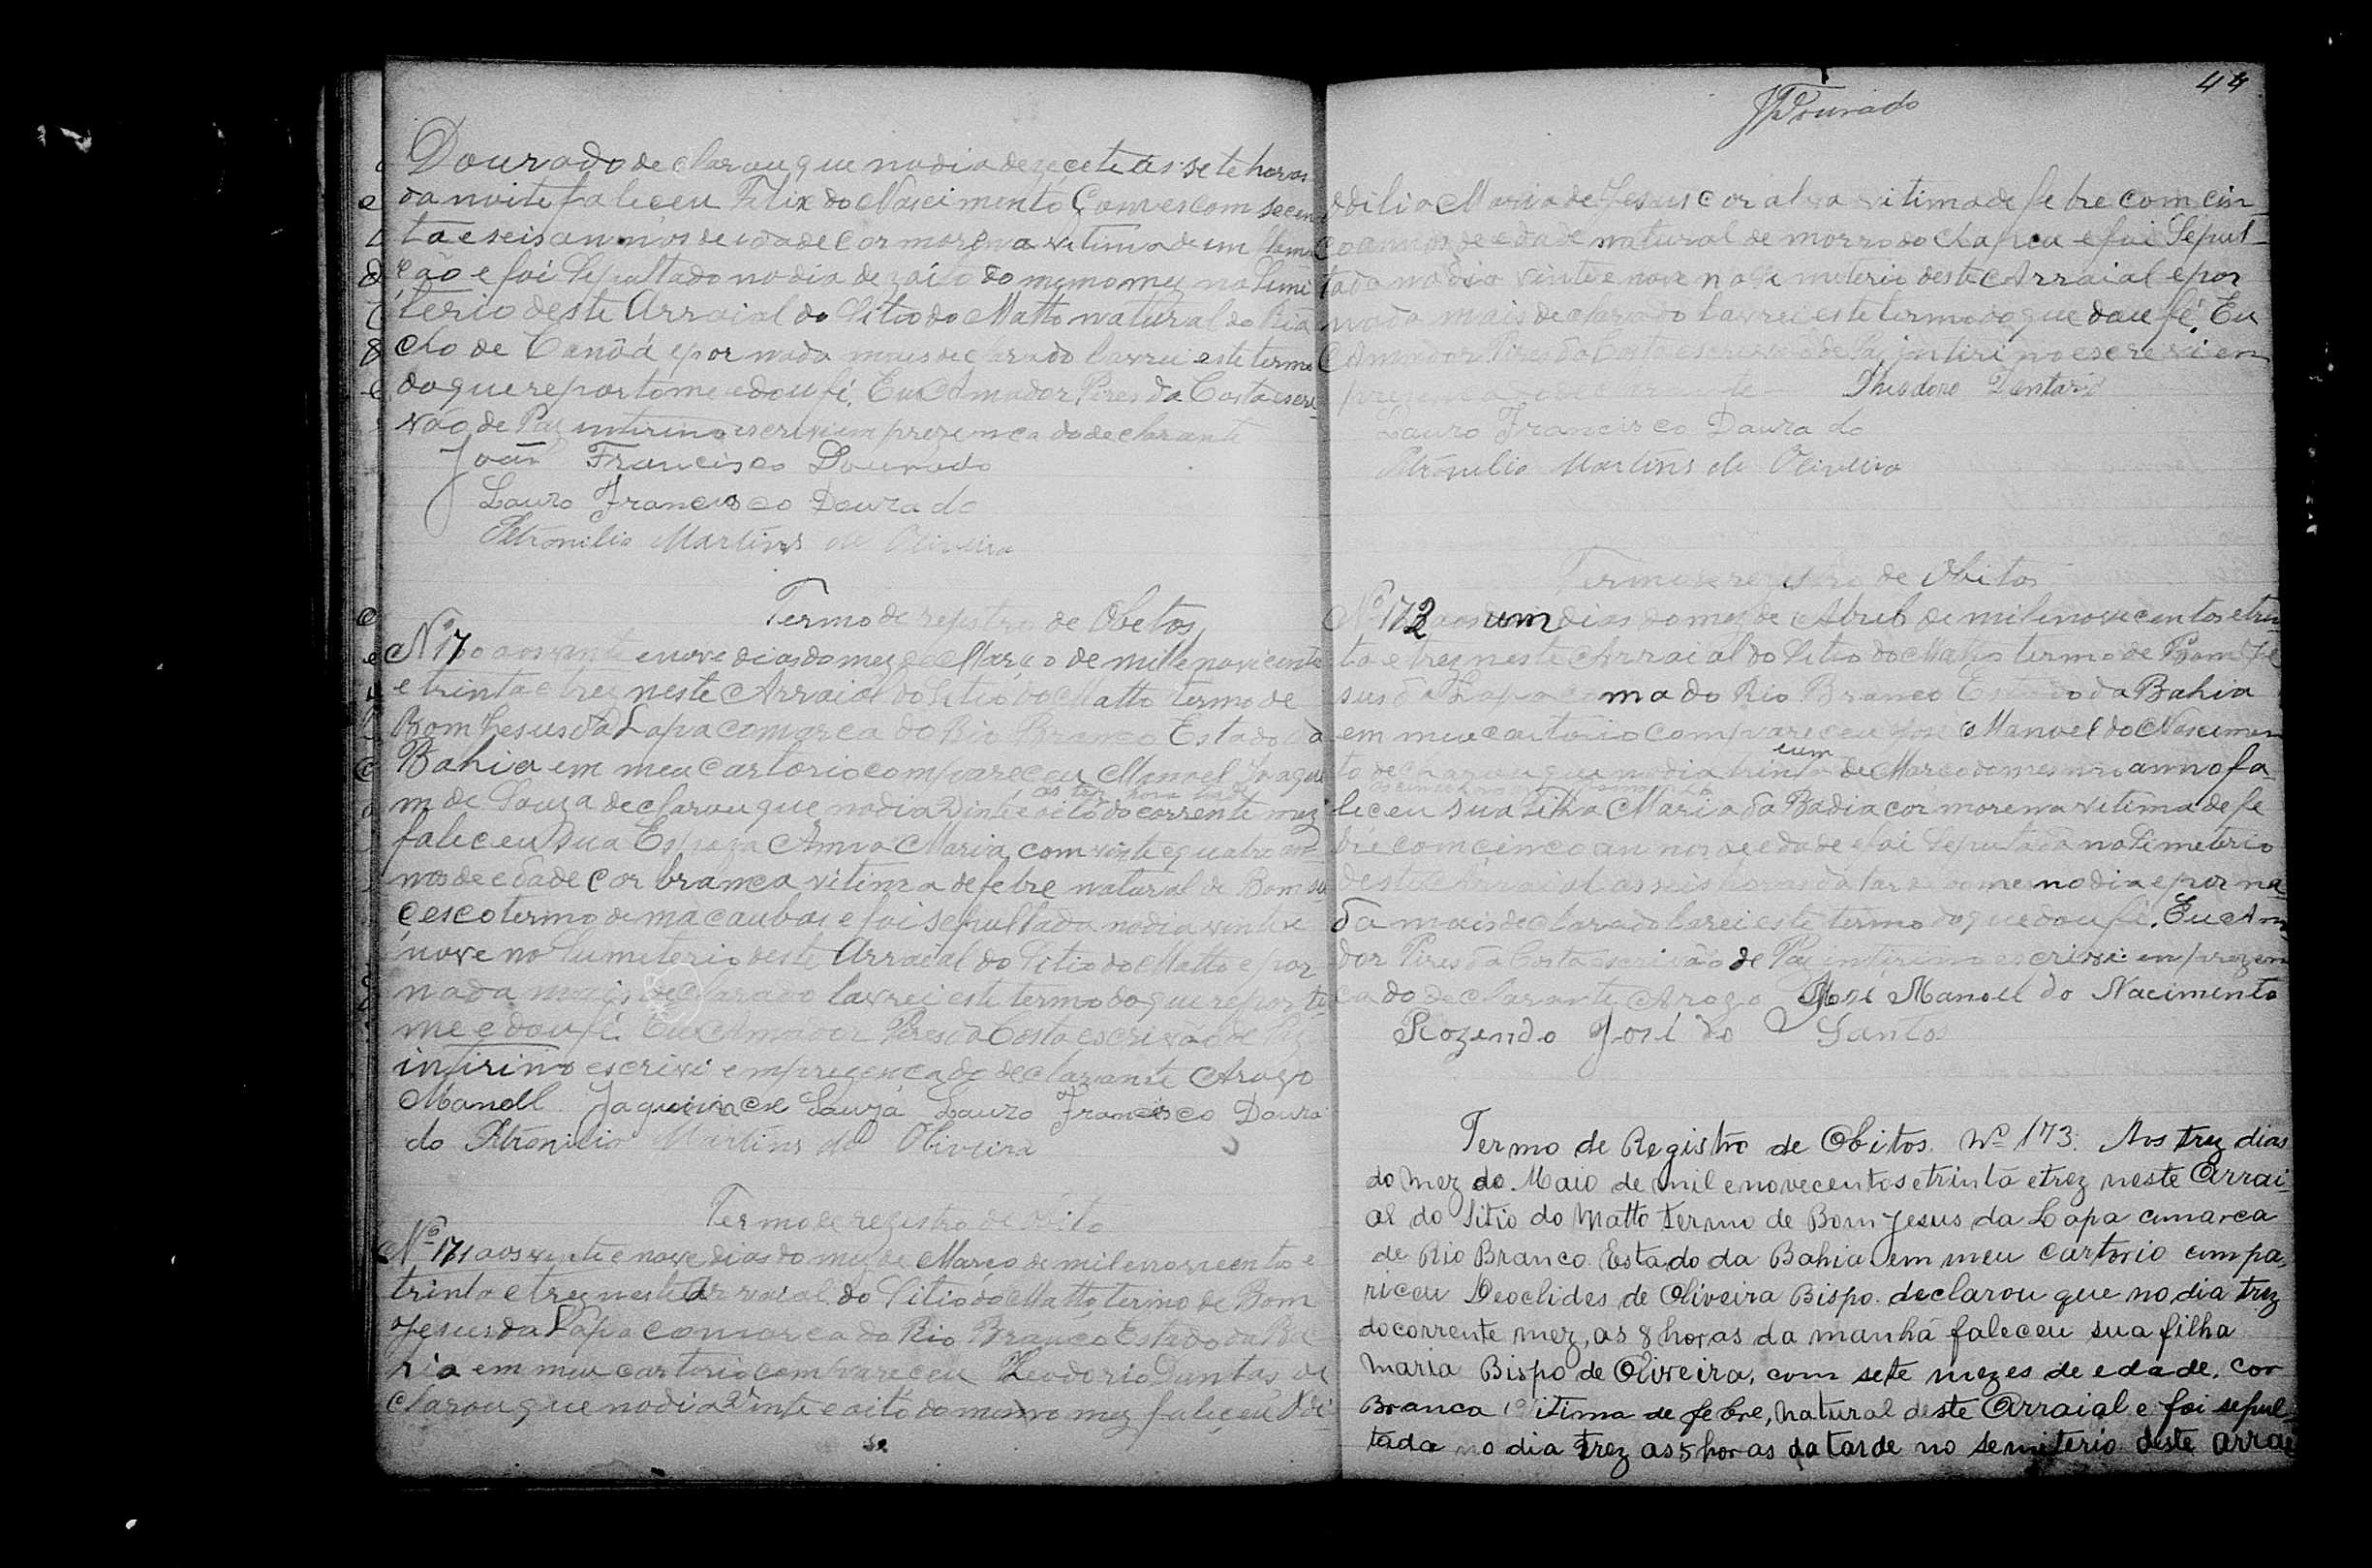 Dourado declarou que no dia dezecete as sete horas
da noite faleceu Felix do Nascimento Gomes com secen
ta e seis annos de edade cor morena vitima de um
ção e foi Sepultado no dia dezoito do mesmo mez no Simi
terio deste Arraial do Sitio do Matto natural do Ria
cho de Canôá e por nada mais declarado lavrei este termo
do que reportome e dou fé. Eu Amador Pires da Costa escri
vão de Paz intirino escrivi em prezença do declarante
João Francisco Dourado
Lauro Francisco Dourado
Petronilio Martins de Oliveira
Termo de registro de Obetos
Nº 170 aos vinte e nove dias do mez de Março de mil e novicento
e trinta e trez neste Arraial do Sitio do Matto termo de
Bom Jesus da Lapa comarca do Rio Branco Estado da
Bahia em meu cartorio compareceu Manoel Joaqui
as tez hora tarde
m de Souza declarou que no dia vinte e oito do corrente mez
faleceu sua Espoza Anna Maria, com vinte e quatro an
nos de edade cor branca vitima de febre natural de Bom su
cesco termo de macaubas e foi sepultada no dia vinte e
nove no Simeterio deste Arraial do Sitio do Matto e por
nada mais declarado lavrei este termo do que reporto
me e dou fé. Eu Amador Pires da Costa escrivão de Paz
intirino escrivi em prezença do declarante Arogo
Manoel Jaquim de Souza Lauro Francisco Doura
do Petronilio Martins de Oliveira
Termo de registro de Obito
Nº 171 aos vinte e nove dias do mez de Março de mil e novecento e
trinta e trez neste Arraial do Sitio do Matto termo de Bom
Jesus da Lapa comarca do Rio Branco Estado da Ba
hia em meu cartorio compareceu Theodorio Dantas de
clarou que no dia vinte e oito do mesmo mez faleceu Odi
44
JDourado
odilia Maria de Jesus cor alva vitima de febre com cin
co annos de edade natural de morro do chapeu e foi Sepul
tada no dia vinte e nove no Simeterio deste Arraial e por
nada mais declarado lavrei este termo do que dou fé. Eu
Amador Pires da Costa escrivão de Paz intirino escrevi em
prezença do declarante Theodoro Dantario
Lauro Francisco Dourado
Petronilio Martins de Oliveira
Termo de registro de Obitos
Nº 172 aos um dias do mez de Abril de mil e novecentos e trin
ta e trez neste Arraial do Sitio do Matto termo de Bom Je
sus da Lapa coma do Rio Branco Estado da Bahia
em meu cartorio compareceu José Manoel do Nascimen
eum
to declarou que no dia trinta de Março do mesmo anno fa
leceu sua Filha Maria da Badia cor morena vitima de fe
bre com cinco annos de edade e foi Sepultada no Simeterio
deste Arraial as seis horas da tarde do mesmo dia e por na
da mais declarado lavrei este termo do que dou fé. Eu Am
dor Pires da Costa escrivão de Paz intirino escrivi em prezen
ça do declarante Arogo José Manoel do Nacimento
Rozendo José do Santos
Termo de Registro de Obitos. Nº 173. Aos trez dias
do mez de Maio de mil e novecentos e trinta e trez neste Arrai
al do Sitio do Matto termo de Bom Jesus da Lapa cumarca
de Rio Branco Estado da Bahia em meu cartorio cumpa
riceu Deoclides de Oliveira Bispo. declarou que no dia trez
do corrente mez, as 8 horas da manhã faleceu sua filha
Maria Bispo de Oliveira, com sete mezes de edade, cor
Branca, Vitima de febre, natural deste Arraial e foi sepul
tada no dia trez as 5 horas da tarde no semiterio deste arrai